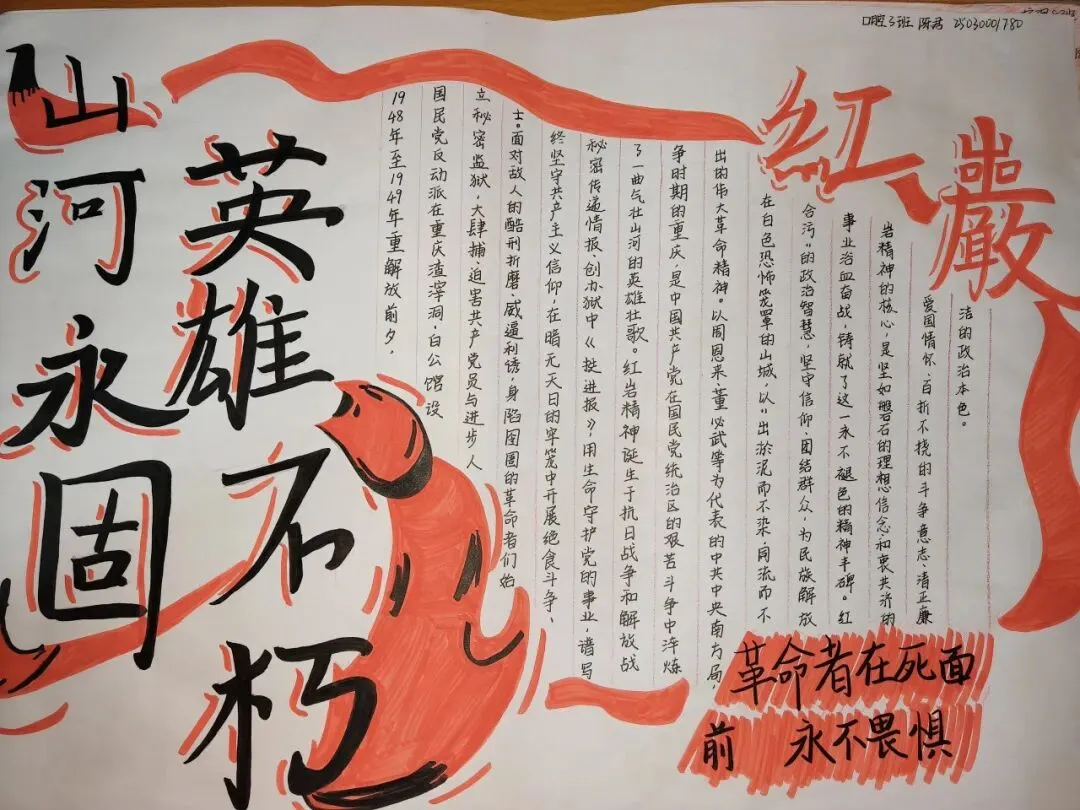 口腔3班 陈君 25030001780
山河永固
英雄不朽
红巖
1948年至1949年重解放前夕，
国民党反动派在重庆渣滓洞，白公馆设
立秘密监狱，大肆捕，迫害共产党员与进步人
士。面对敌人的酷刑折磨、威逼利诱，身陷囹圄的革命者们始
终坚守共产主义信仰，在暗无天日的牢笼中开展绝食斗争、
秘密传递情报、创办狱中《挺进报》，用生命守护党的事业，谱写
了一曲气壮山河的英雄壮歌。红岩精神诞生于抗日战争和解放战
争时期的重庆，是中国共产党在国民党统治区的艰苦斗争中淬炼
出的伟大革命精神。以周恩来、董必武等为代表的中共中央南方局，
在白色恐怖笼罩的山城，以“出淤泥而不染，同流而不
合污”的政治智慧，坚守信仰、团结群众，为民族解放
事业浴血奋战，铸就了这一永不褪色的精神丰碑。红
岩精神的核心，是坚如磐石的理想信念、和衷共济的
爱国情怀、百折不挠的斗争意志、清正廉
洁的政治本色。
革命者在死面
前 永不畏惧